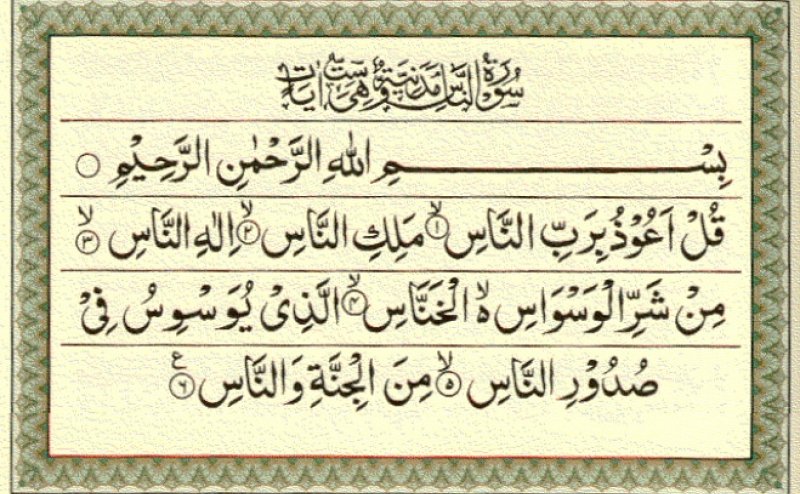 سُوْرَةُ النَّاسِ مَدَنِيَّةٌ وَّهِيَ سِتُّ اٰيَاتٍ
بِسْـــــــــمِ اللهِ الرَّحْمٰنِ الرَّحِيْمِ ○
قُلْ اَعُوْذُ بِرَبِّ النَّاسِ ۙ﴿۱﴾ مَلِكِ النَّاسِ ۙ﴿۲﴾ اِلٰهِ النَّاسِ ۙ﴿۳﴾
مِنْ شَرِّ الْوَسْوَاسِ ەۙ الْخَنَّاسِ ۙ﴿۴﴾ الَّذِىْ يُوَسْوِسُ فِىْ
صُدُوْرِ النَّاسِ ۙ﴿۵﴾ مِنَ الْجِنَّةِ وَالنَّاسِ ﴿۶﴾ ع